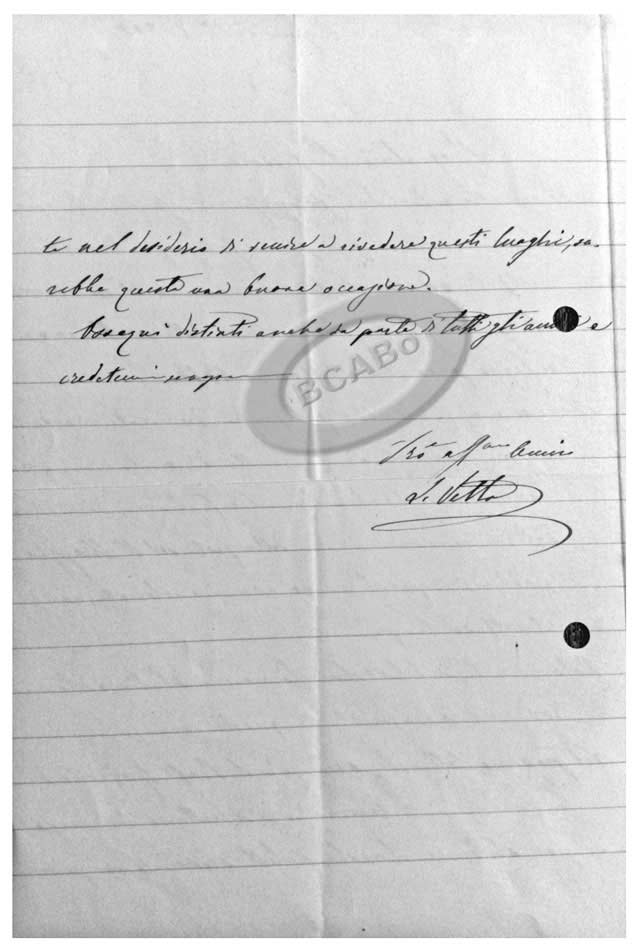 te nel desiderio di venire a rivedere questi luoghi, sa-
rebbe questa una buona occasione.
Ossequi distinti anche da parte di tutti gli e
credetemi sempre
BCABo
aff.mo Amico
L. Vella